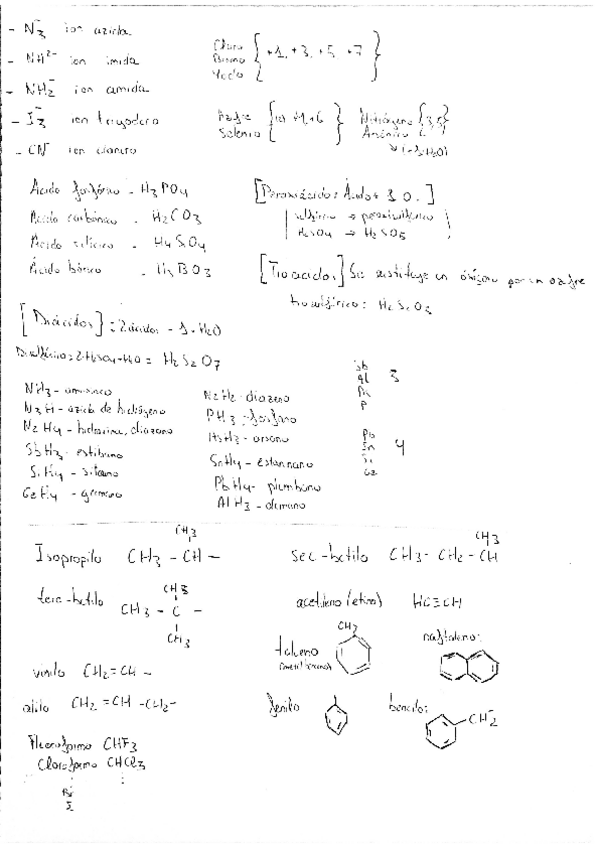 - N₃⁻ ion azida
- NH²⁻ ion imida
- NH₂⁻ ion amida
- I₃⁻ ion
- CN⁻ ion cianuro
Cloro
Bromo
Yodo
{ +1, +3, +5, +7 }
Azufre
Selenio
Nitrógeno {3,5}
Arsénico
Ácido fosfórico - H₃PO₄
Ácido carbónico - H₂CO₃
Ácido silícico - H₄SO₄
Ácido bórico - H₃BO₃
[Peroxiácidos: Ácido + 1 O.]
sulfúrico → peroxisulfúrico
H₂SO₄ → H₂SO₅
[Tioácidos] Se sustituye un oxígeno por un azufre
tiosulfúrico: H₂S₂O₃
[Diácidos] = 2 ácidos - 1 H₂O
Disulfúrico = 2 H₂SO₄ - H₂O = H₂S₂O₇
Sb
Al
P
3
Pb
Sn
Si
Ge
4
NH₃ - amoniaco
N₃H - azida de hidrógeno
N₂H₄ - hidracina, diazano
SbH₃ - estibano
SiH₄ - silano
GeH₄ - germano
N₂H₂ - diazeno
PH₃ - fosfano
AsH₃ - arsano
SnH₄ - estannano
PbH₄ - plumbano
AlH₃ - alumano
CH₃
Isopropilo CH₃ - CH -
CH₃
sec-butilo CH₃ - CH₂ - CH
CH₃
terc-butilo CH₃ - C -
CH₃
acetileno (etino) HC≡CH
CH₃
tolueno
(metilbenceno)
naftaleno:
vinilo CH₂=CH -
alilo CH₂=CH-CH₂-
fenilo
bencilo:
CH₂⁻
Fluoroformo CHF₃
Cloroformo CHCl₃
Br
I